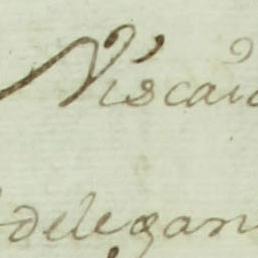 Viscaio
delegan